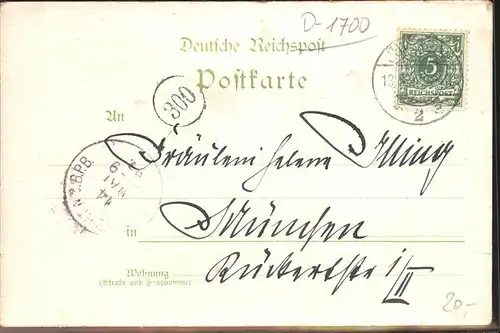 D-1700
Deutsche Reichspost
Postkarte
5
REICHSPOST
13
2
300
An
Fräulein Helene Illing
B.P.B.
14
MAI
9
in München
Wohnung
(Straße und Hausnummer
Rückertstr 1/II
20.-